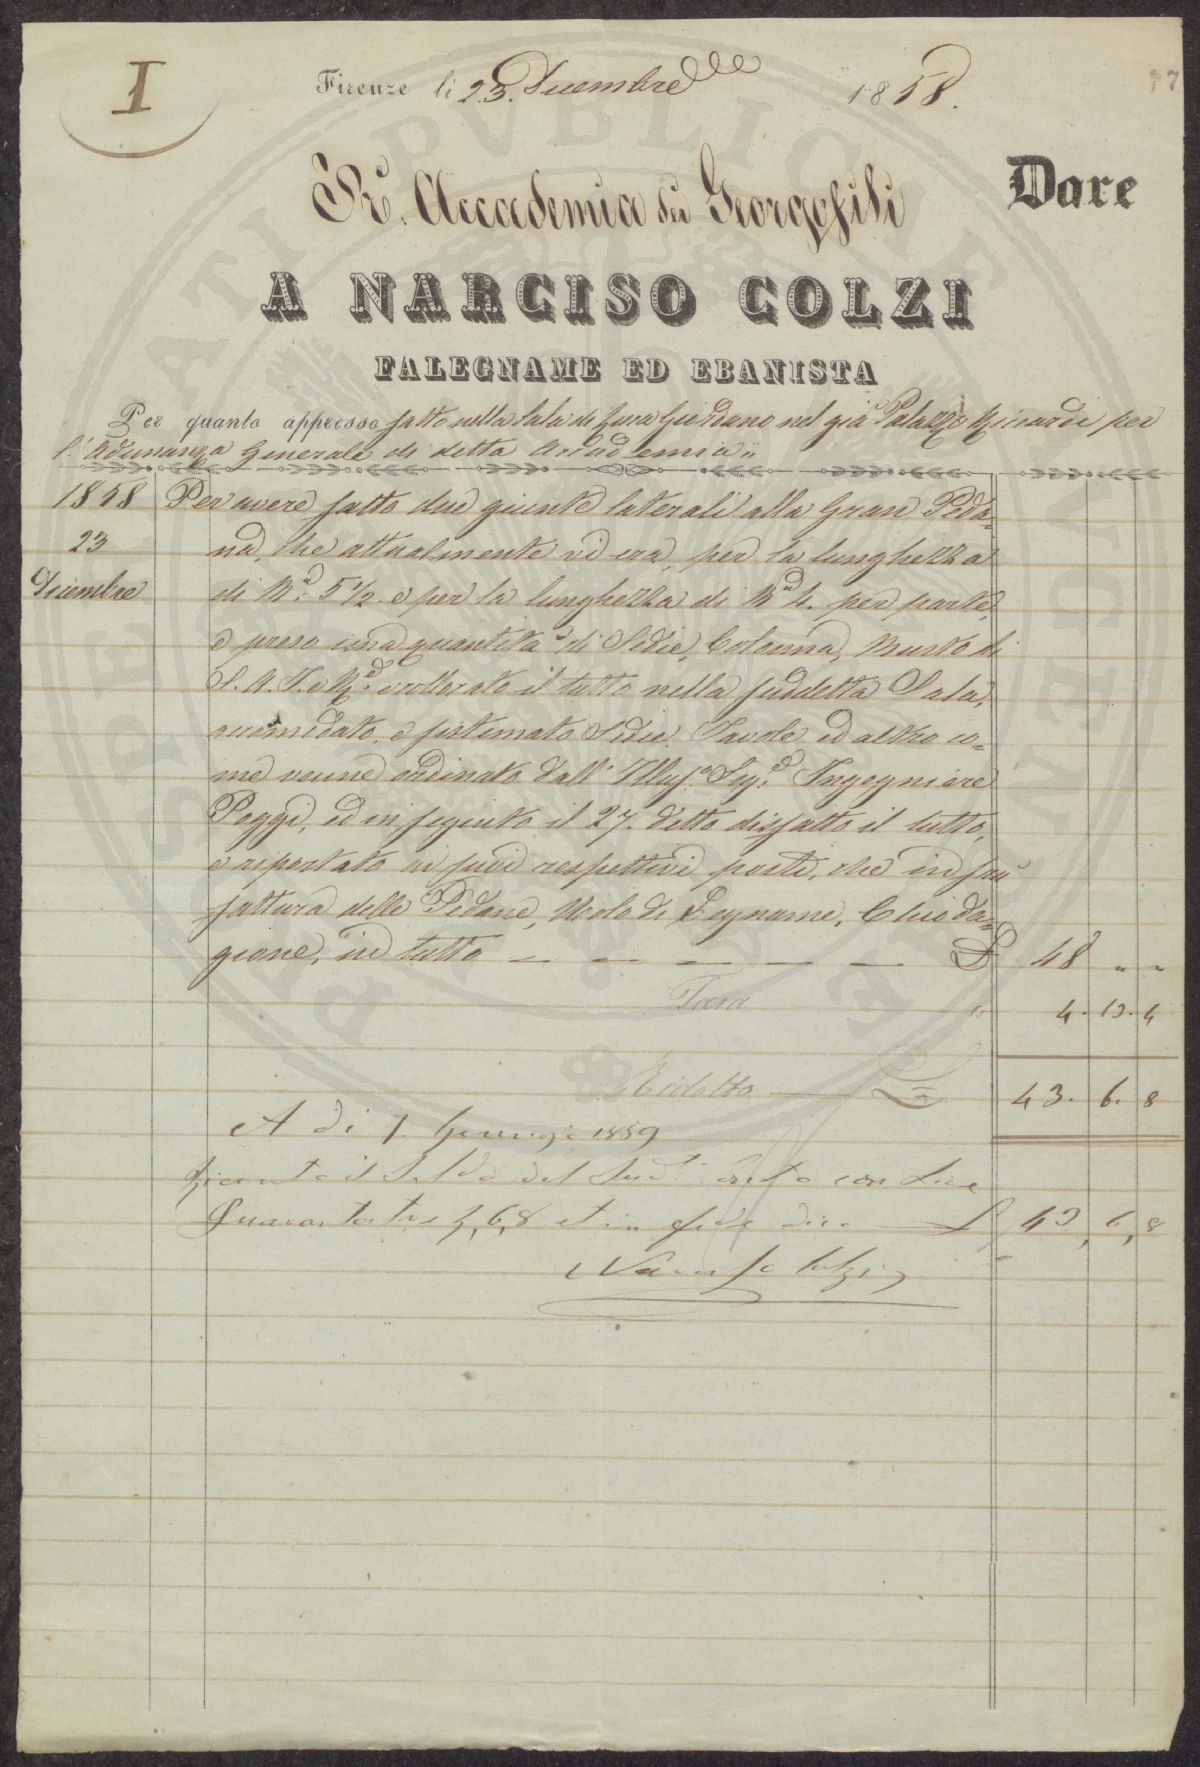 I
77
Firenze li 23. Dicembre 1858.
R. Accademia dei Georgofili Dare
A NARCISO COLZI
FALEGNAME ED EBANISTA
Per quanto appresso fatto nella Sala di Luca Giordano nel già Palazzo Riccardi per
l'Adunanza Generale di detta Accademia
1858 Per avere fatto due giunte laterali alla Gran Peda=
23 na, che attualmente vi era, per la lunghezza
Dicembre di Bª 5 1/2 e per la lunghezza di Bª 4. per parte,
e preso una quantità di Sedie, Colonna, Busto di
S. A. I. e R. e collocato il tutto nella suddetta Sala,
accomodato, e sistemato Sedie, Tavole ed altro co=
me venne ordinato dall' Illmo Sigr Ingegniere
Poggi, ed in seguito il 27. detto disfatto il tutto,
e riportato ai suoi respettivi posti, che in fra
fattura delle Pedane, Nolo di Legname, Chioda=
gione, in tutto — — — — — £ 48 " "
Tara " 4. 13. 4
Ridotto — £ 43. 6. 8
A di 7. Gennajo 1859
Ricevuto il Saldo del Sudº Conto con Lire
Quarantatre, 6, 8 et in fede dico — £ 43, 6, 8
Narciso Colzi